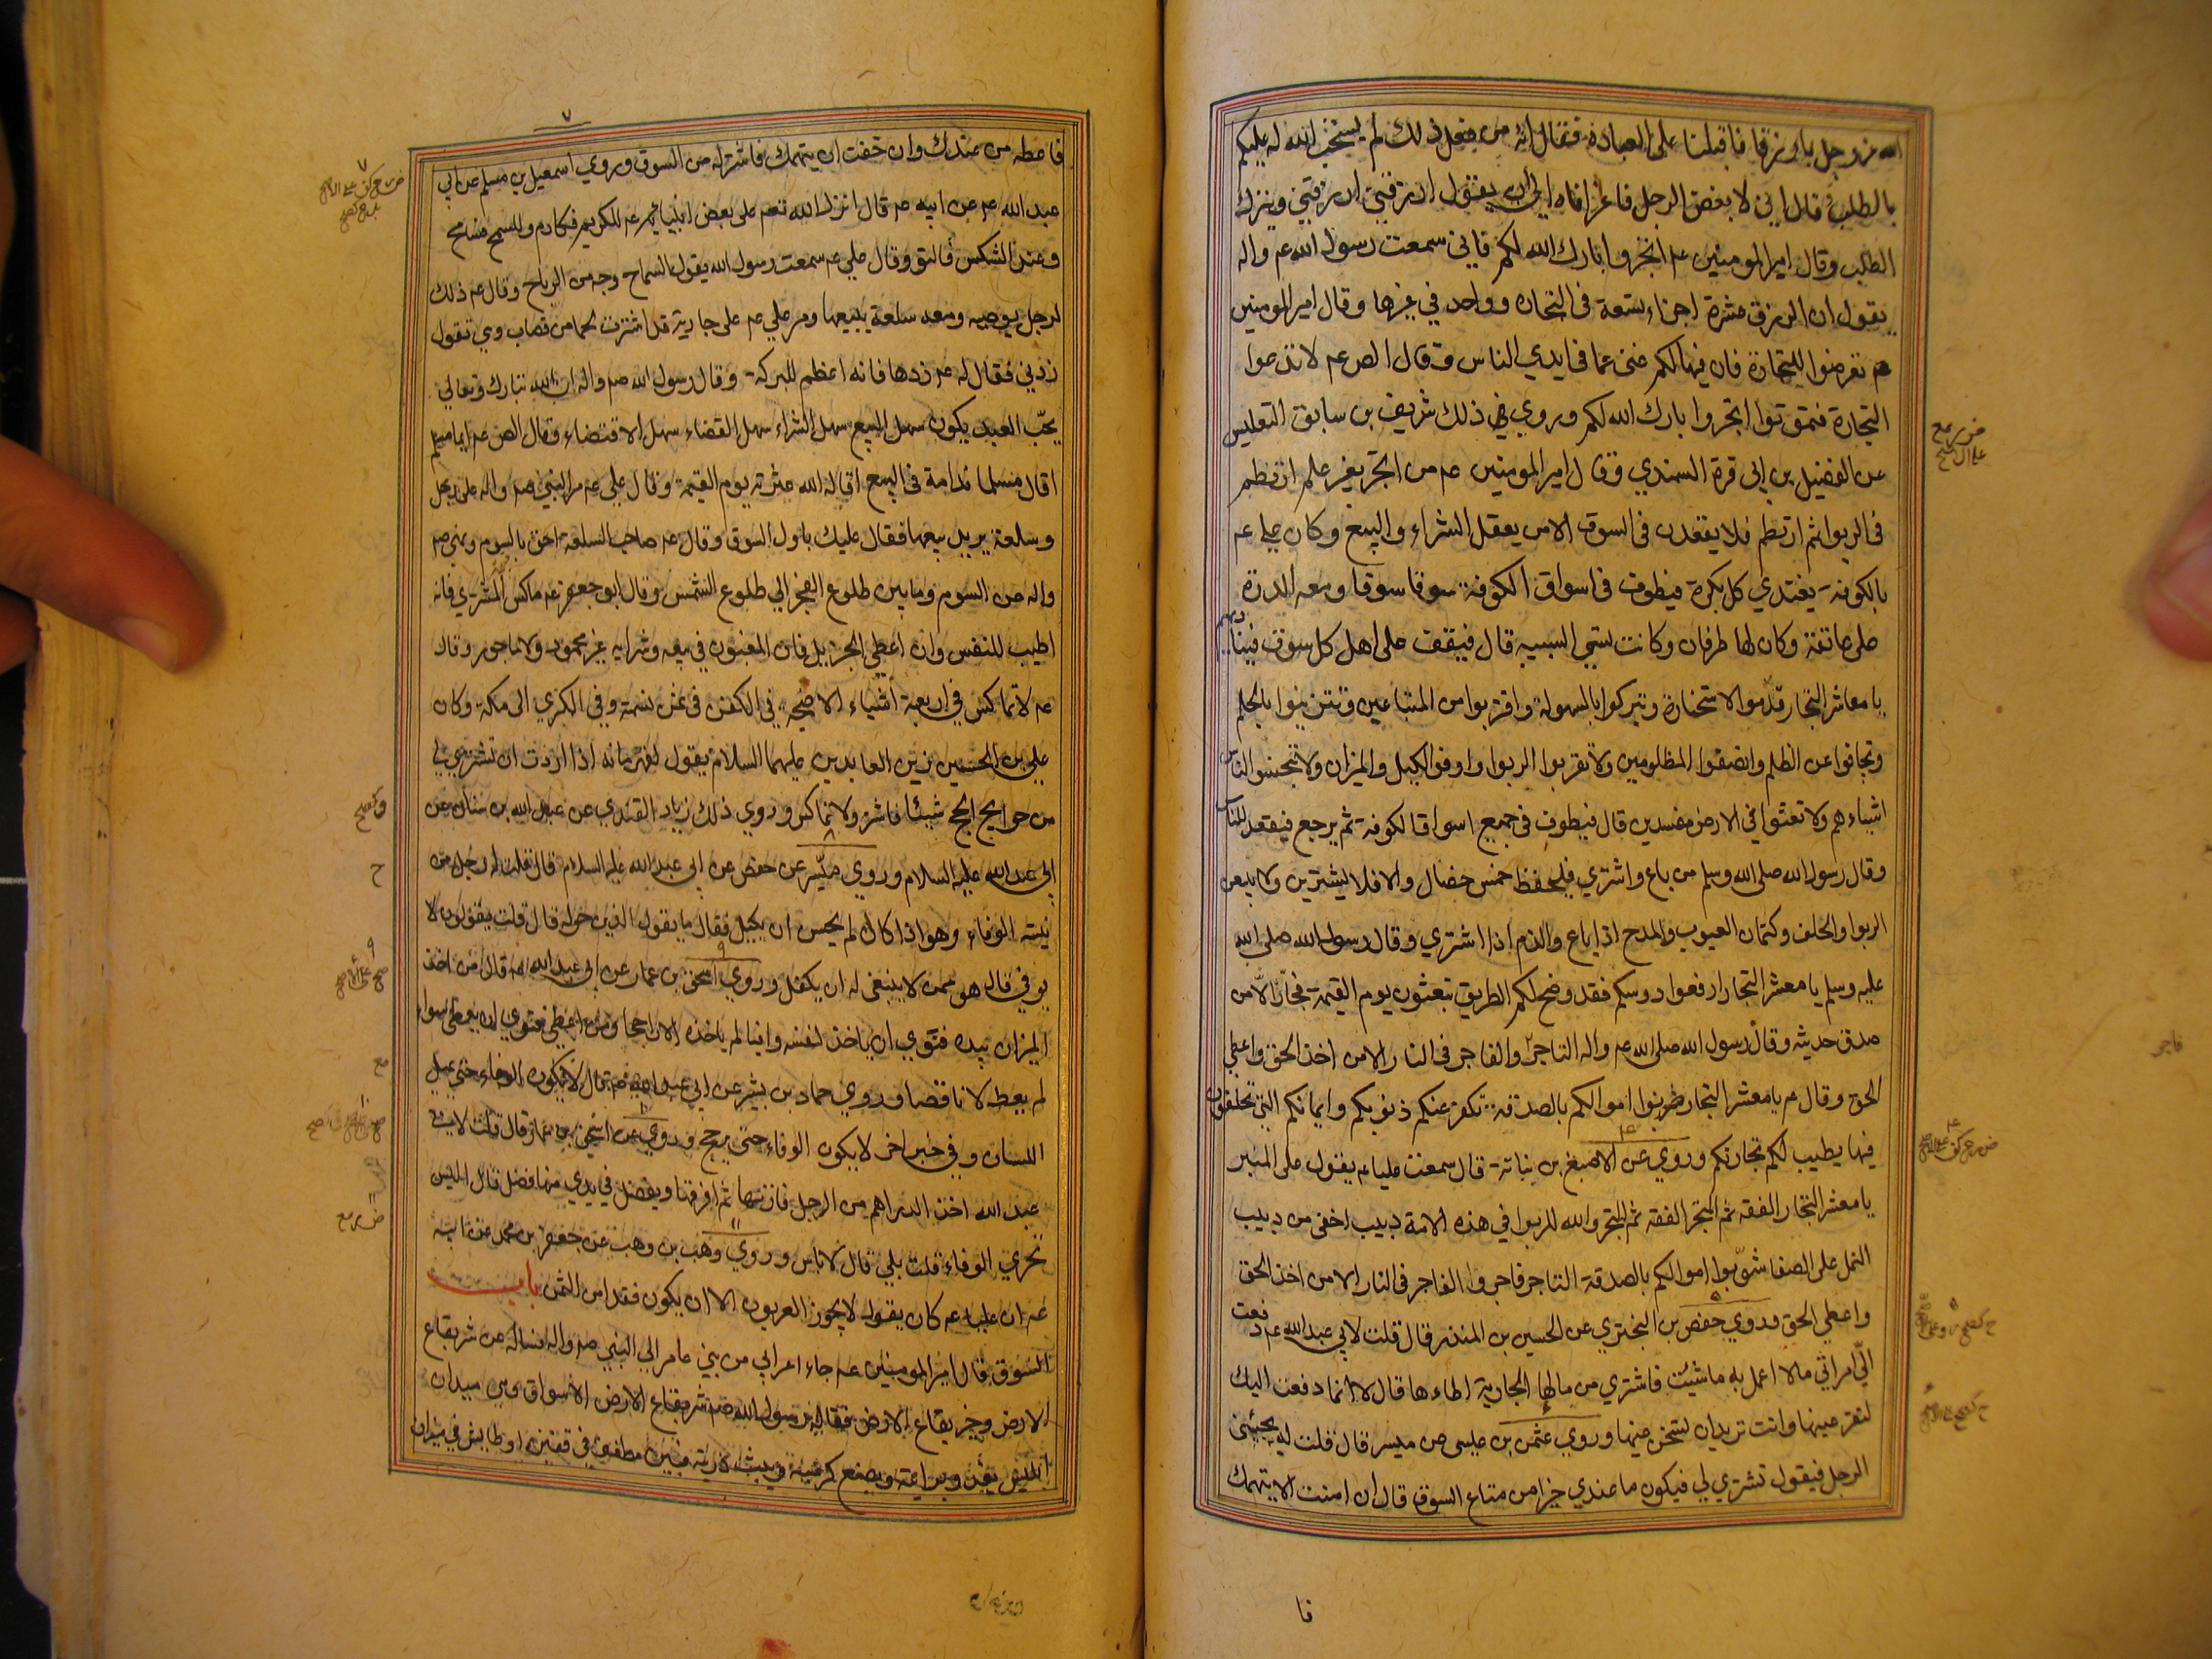 بالطلب قال اني لابغض الرجل فاغرا فاه الى ربه يقول ارزقني ارزقني ويترك
الطلب وقال امير المومنين عم اتجروا بارك الله لكم فاني سمعت رسول الله عم واله
يقول ان الرزق عشرة اجزاء تسعة في التجارة وواحد في غيرها وقال امير المومنين
عم تعرضوا للتجارة فان فيها لكم غنى عما في ايدي الناس وقال الص عم لا تدعوا
التجارة فتهونوا اتجروا بارك الله لكم وروي في ذلك شريف بن سابق التفليسي
عن الفضيل بن ابي قرة السمندي وقال امير المومنين عم من اتجر بغير علم ارتطم
في الربوا ثم ارتطم فلا يقعدن في السوق الا من يعقل الشراء والبيع وكان علي عم
بالكوفة يغتدي كل بكرة فيطوف في اسواق الكوفة سوقا سوقا ومعه الدرة
على عاتقه وكان لها طرفان وكانت تسمى السبيبه قال فيقف على اهل كل سوق فينا ديهم
يا معاشر التجار قدموا الاستخارة وتبركوا بالسهولة واقتربوا من المتباعين وتزينوا بالحلم
وتجافوا عن الظلم وانصفوا المظلومين ولا تقربوا الربوا واوفوا الكيل والميزان ولا تبخسوا الناس
اشياءهم ولا تعثوا في الارض مفسدين قال فيطوف في جميع اسواق الكوفة ثم يرجع فيقعد للناس
وقال رسول الله صلى الله وسلم من باع واشتري فليحفظ خمس خصال والا فلا يشترين ولا يبيعن
الربوا والحلف وكتمان العيوب والمدح اذا باع والذم اذا اشتري وقال رسول الله صلى الله
عليه وسلم يا معشر التجار ارفعوا روسكم فقد وضح لكم الطريق تبعثون يوم القيمة فجارا الا من
صدق حديثه وقال رسول الله صلى الله عم واله التاجر والفاجر في النار الا من اخذ الحق واعطي
الحق وقال م يا معشر التجار صونوا اموالكم بالصدقة تكفر عنكم ذنوبكم وايمانكم التي تحلفون
فيها يطيب لكم تجارتكم وروي عن الاصبغ بن نباتة قال سمعت عليا عم يقول على المنبر
يا معشر التجار الفقه ثم المتجر الفقه ثم المتجر والله للربوا في هذه الامة دبيب اخفى من دبيب
النمل على الصفا شوبوا اموالكم بالصدقة التاجر فاجر والفاجر في النار الا من اخذ الحق
واعطي الحق وروي حفص بن البختري عن الحسين بن المنذر قال قلت لابي عبد الله عم دفعت
الي امراتي مالا اعمل به ما شئت فاشتري من مالها الجارية اطاءها قال لا انما دفعت اليك
لتقر عينها وانت تريد ان تسخن عينها وروي عثمن بن عيسى عن ميسر قال قلت له يجيئني
الرجل فيقول تشتري لي فيكون ما عندي خيرا من متاع السوق قال ان امنت الا يتهمك
فا
٧
فاعطه من عندك وان خفت ان يتهمك فاشتر له من السوق وروي اسمعيل بن مسلم عن ابي
عبد الله عم عن ابيه عم قال انزل الله تعم على بعض انبيائه عم للكريم فكارم وللسمح فسامح
وعند الشكس فالتو وقال علي عم سمعت رسول الله يقول السماح وجه من الرباح وقال عم ذلك
لرجل يوصيه ومعه سلعة يبيعها ومر علي عم على جارية قد اشترت لحما من قصاب وهي تقول
زدني فقال له عم زدها فانه اعظم للبركة وقال رسول الله صم واله ان الله تبارك وتعالي
يحب العبد يكون سهل البيع سهل الشراء سهل القضاء سهل الاقتضاء وقال الص عم ايما مسلم
اقال مسلما ندامة في البيع اقاله الله عثرته يوم القيمة وقال علي عم مر النبي صم واله على رجل
وسلعة يريد بيعها فقال عليك باول السوق وقال عم صاحب السلعة احق بالسوم ونهى صم
واله عن السوم وما بين طلوع الفجر الي طلوع الشمس وقال ابو جعفر عم ماكس المشتري فانه
اطيب للنفس وان اعطي الجزيل فان المغبون في بيعه وشرايه غير محمود ولا ماجور وقال
عم لا تماكس في اربعة اشياء الاضحية في الكفن في ثمن نسمة وفي الكري الى مكة وكان
علي بن الحسين زين العابدين عليهما السلام يقول لقهرمانه اذا اردت ان تشتري لي
من حوايج الحج شيئا فاشتر ولا تماكس وروي ذلك زياد القندي عن عبد الله بن سنان عن
ابي عبد الله عليه السلام وروي ميسر عن حفص عن ابي عبد الله عليه السلام قال قلت له رجل من
نيته الوفاء وهو اذا كال لم يحسن ان يكيل فقال ما يقول الذين حوله قال قلت يقولون لا
يوفي قال هو ممن لا ينبغي له ان يكيل وروي اسحق بن عمار عن ابي عبد الله عم قال من اخذ
الميزان بيده فنوي ان ياخذ لنفسه وافيا لم ياخذه الا راجحا ومن اعطي فنوي ان يعطي سواء
لم يعط الا ناقصا وروي حماد بن بشير عن ابي عبد الله عم قال لا يكون الوفاء حتي يميل
اللسان وفي خبر اخر لا يكون الوفاء حتى يرجح وروي عن اسحق بن عمار قال قلت لابي
عبد الله اخذ الدراهم من الرجل فازنها ثم افرقها ويفضل في يدي منها فضل قال اليس
تحري الوفاء قلت بلي قال لا باس وروي وهب بن وهب عن جعفر بن محمد عن ابيه
عم ان عليا عم كان يقول لا يجوز العربون الا ان يكون فقد امن الثمن باب
السوق قال امير المومنين عم جاء اعرابي من بني عامر الي النبي صم واله فساله عن شر بقاع
الارض وخير بقاع الارض فقال رسول الله صم شر بقاع الارض الاسواق وهي ميدان
ابليس يغدو برايته ويضع كرسيه ويبث ذريته فبين مطفف في قفيز او طايش في ميزان